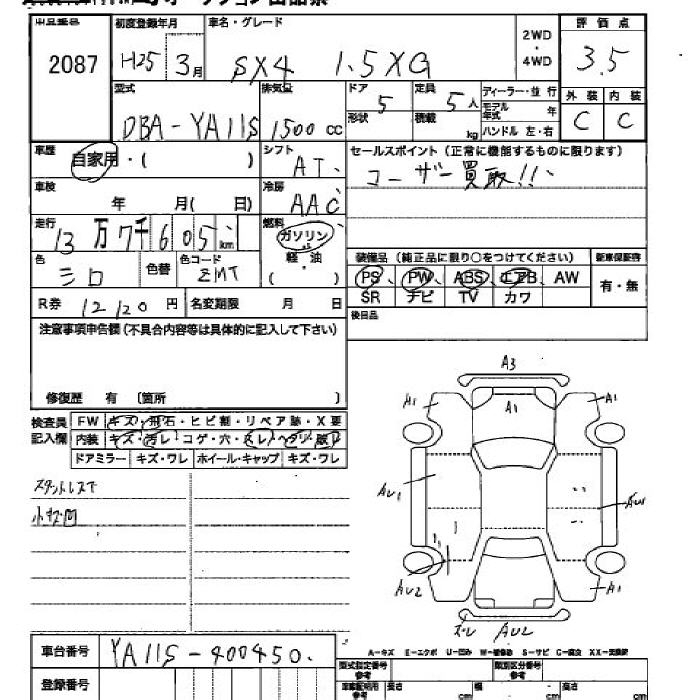 出品番号 初度登録年月 車名・グレード 2WD・4WD 評価点
2087 H25 3月 SX4 1.5XG 3.5
型式 排気量 ドア 5 定員 5人 ディーラー・並行 外装 内装
DBA-YA11S 1500cc 形状 積載 kg モデル年式 年 C C
ハンドル 左・右
車歴 自家用・( ) シフト AT セールスポイント(正常に機能するものに限ります)
車検 年 月( 日) 冷房 AAC ユーザー買取!!
走行 13万7千605km 燃料 ガソリン
軽・油
( )
色 シロ 色替 色コード ZMT 装備品(純正品に限り○をつけてください) 新車保証書
PS PW ABS エアB AW 有・無
R券 12120円 名変期限 月 日 SR ナビ TV カワ
注意事項申告欄(不具合内容等は具体的に記入して下さい) 後日品
修復歴 有 〔箇所 〕
検査員記入欄 FW キズ・飛石・ヒビ割・リペア跡・X要
内装 キズ・汚レ・コゲ・穴・スレ・ヘタリ・破レ
ドアミラー キズ・ワレ ホイール・キャップ キズ・ワレ
A3
A1 A1 A1
小キズ凹
AU1 AU1
AU2 A1
ズレ AU2
車台番号 YA11S-400450
A-キズ E-エクボ U-凹み W-補修跡 S-サビ C-腐食 XX-交換済
登録番号 型式指定番号 参考 類別区分番号 参考
車庫証明用 参考 長さ cm 幅 cm 高さ cm